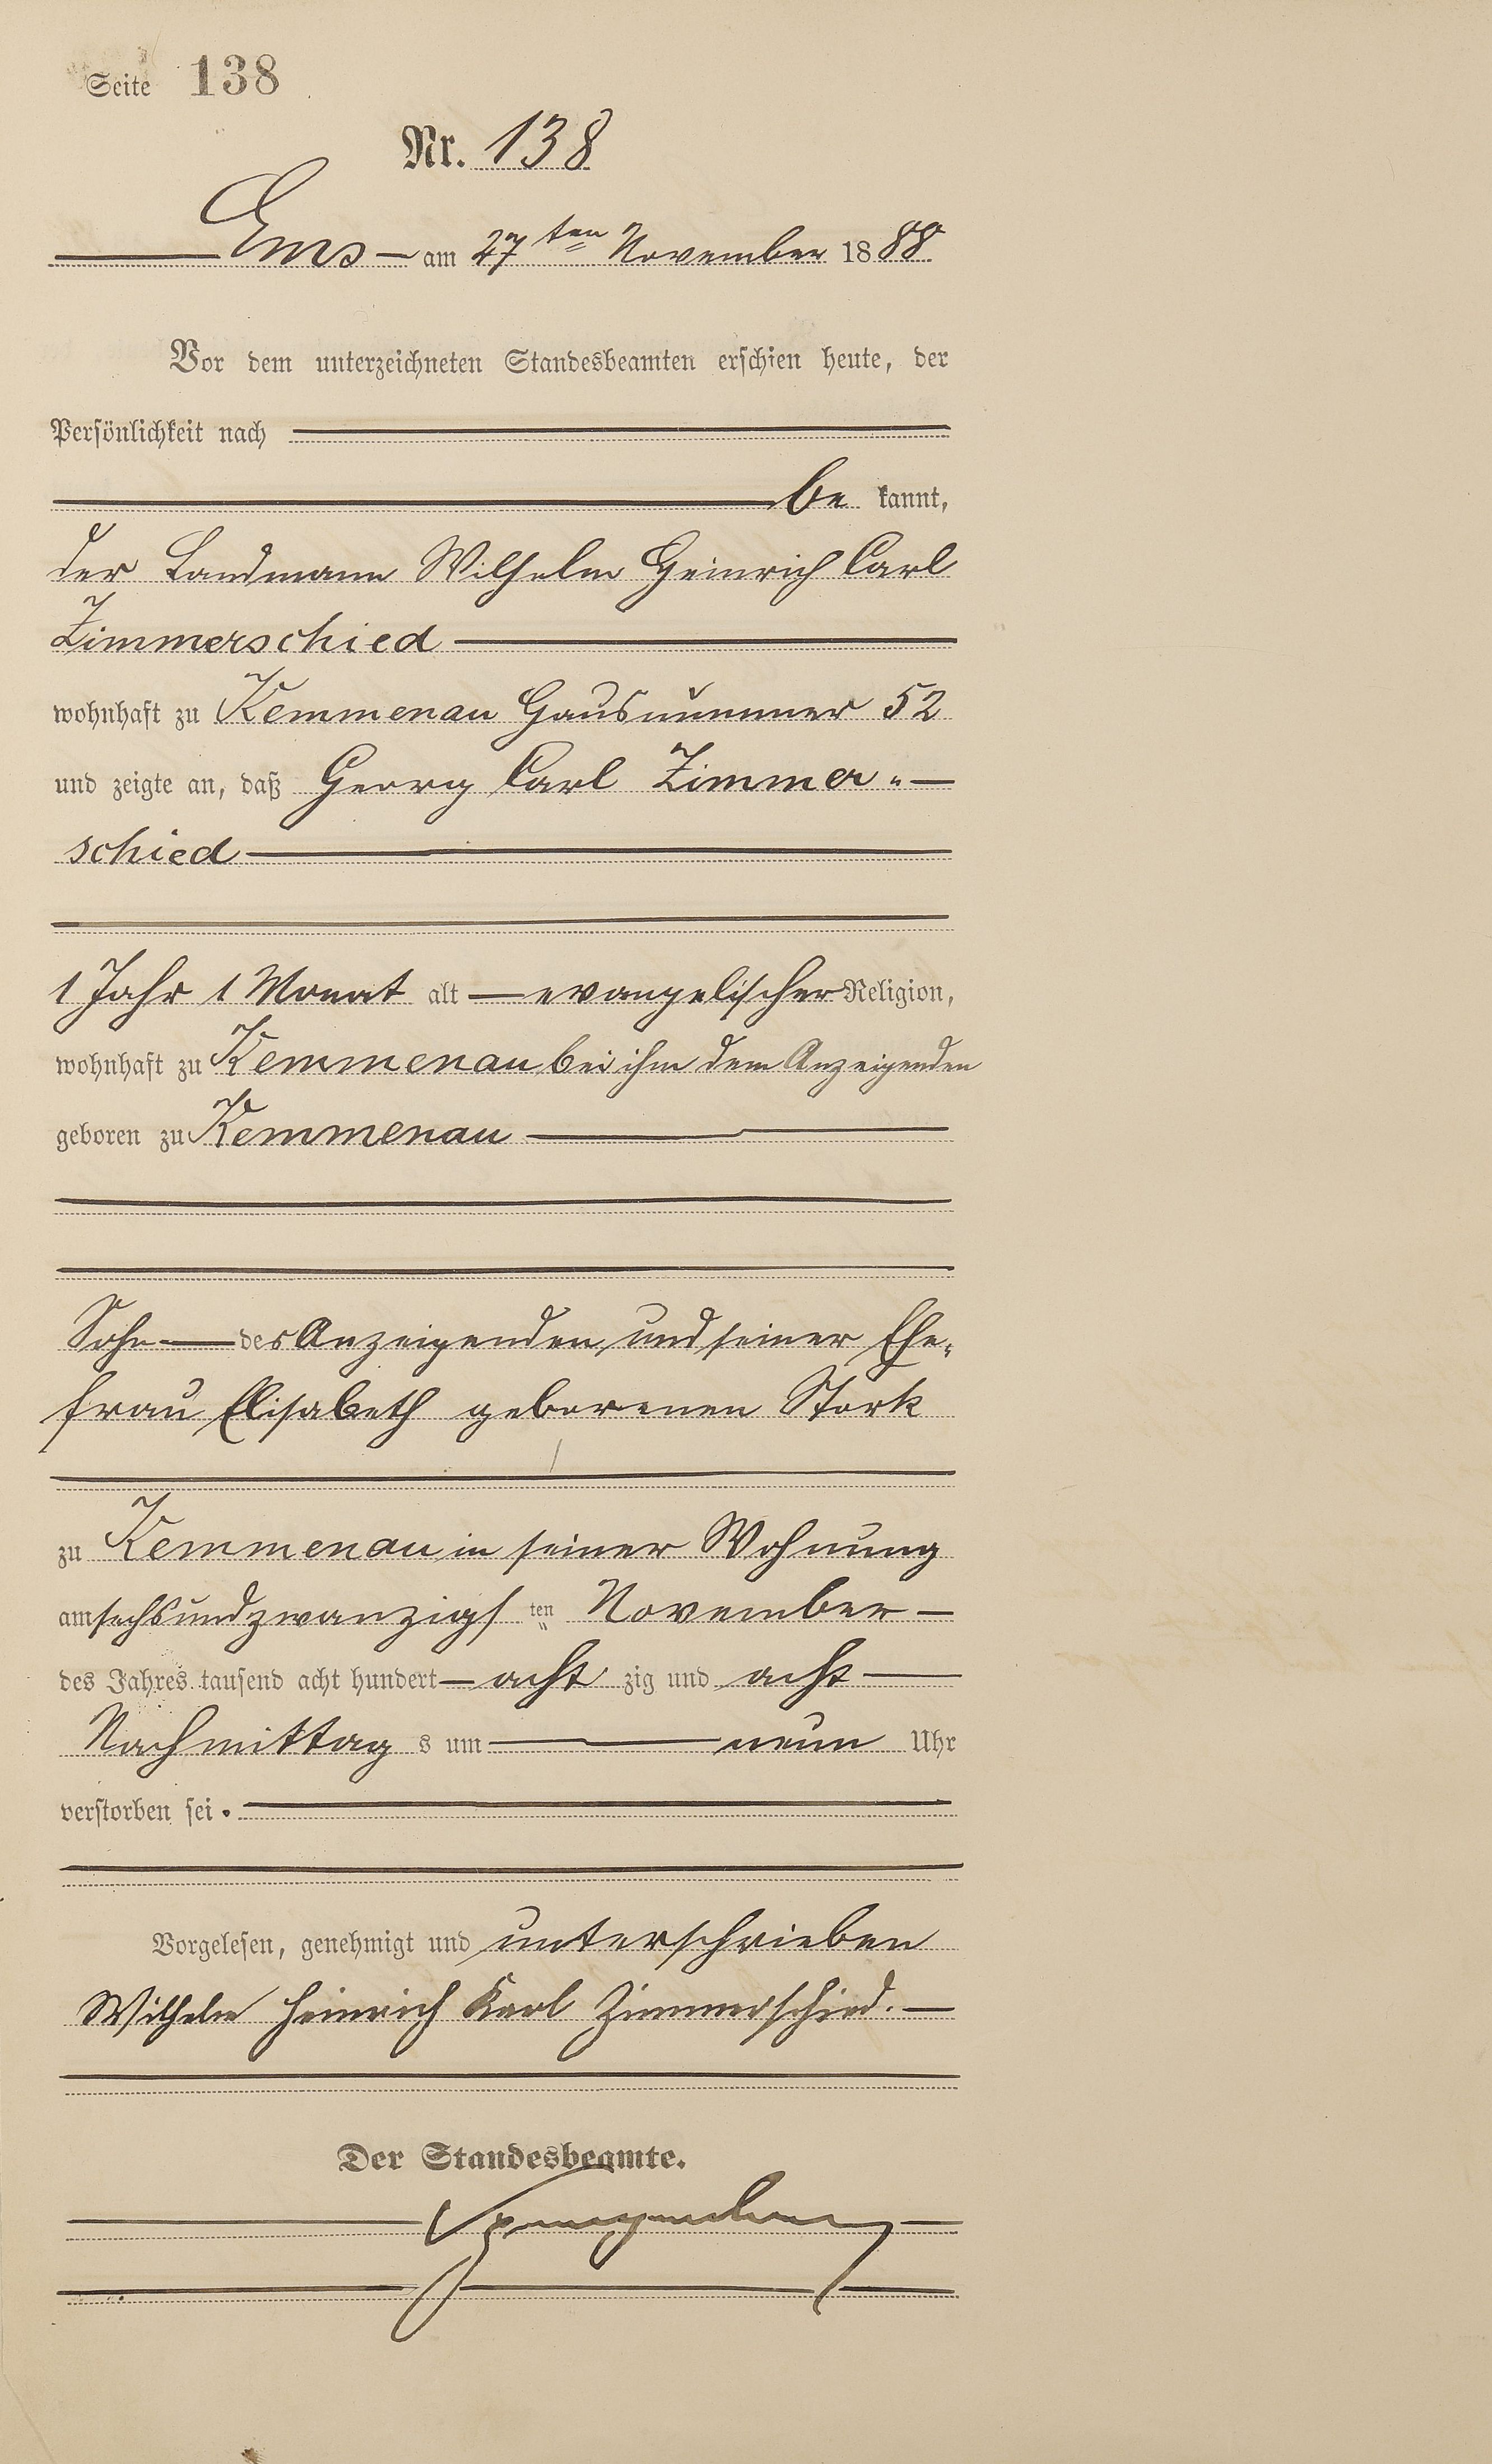 Seite 138
Nr. 138
Ems am 27ten November 1888
Vor dem unterzeichneten Standesbeamten erschien heute, der
Persönlichkeit nach
be kannt,
der Landmann Wilhelm Heinrich Carl
Zimmerschied
wohnhaft zu Kemmenau Hausnummer 52
und zeigte an, daß Georg Carl Zimmer-
schied
1 Jahr 1 Monat alt evangelischer Religion,
wohnhaft zu Kemmenau bei ihm dem Anzeigenden
geboren zu Kemmenau
Sohn des Anzeigenden und seiner Ehe-
frau Elisabeth geborenen Stork
zu Kemmenau in seiner Wohnung
am sechsundzwanzigsten November
des Jahres tausend acht hundert acht zig und acht
Nachmittag s um neun Uhr
verstorben sei.
Vorgelesen, genehmigt und unterschrieben
Wilhelm Heinrich Karl Zimmerschied.
Der Standesbeamte.